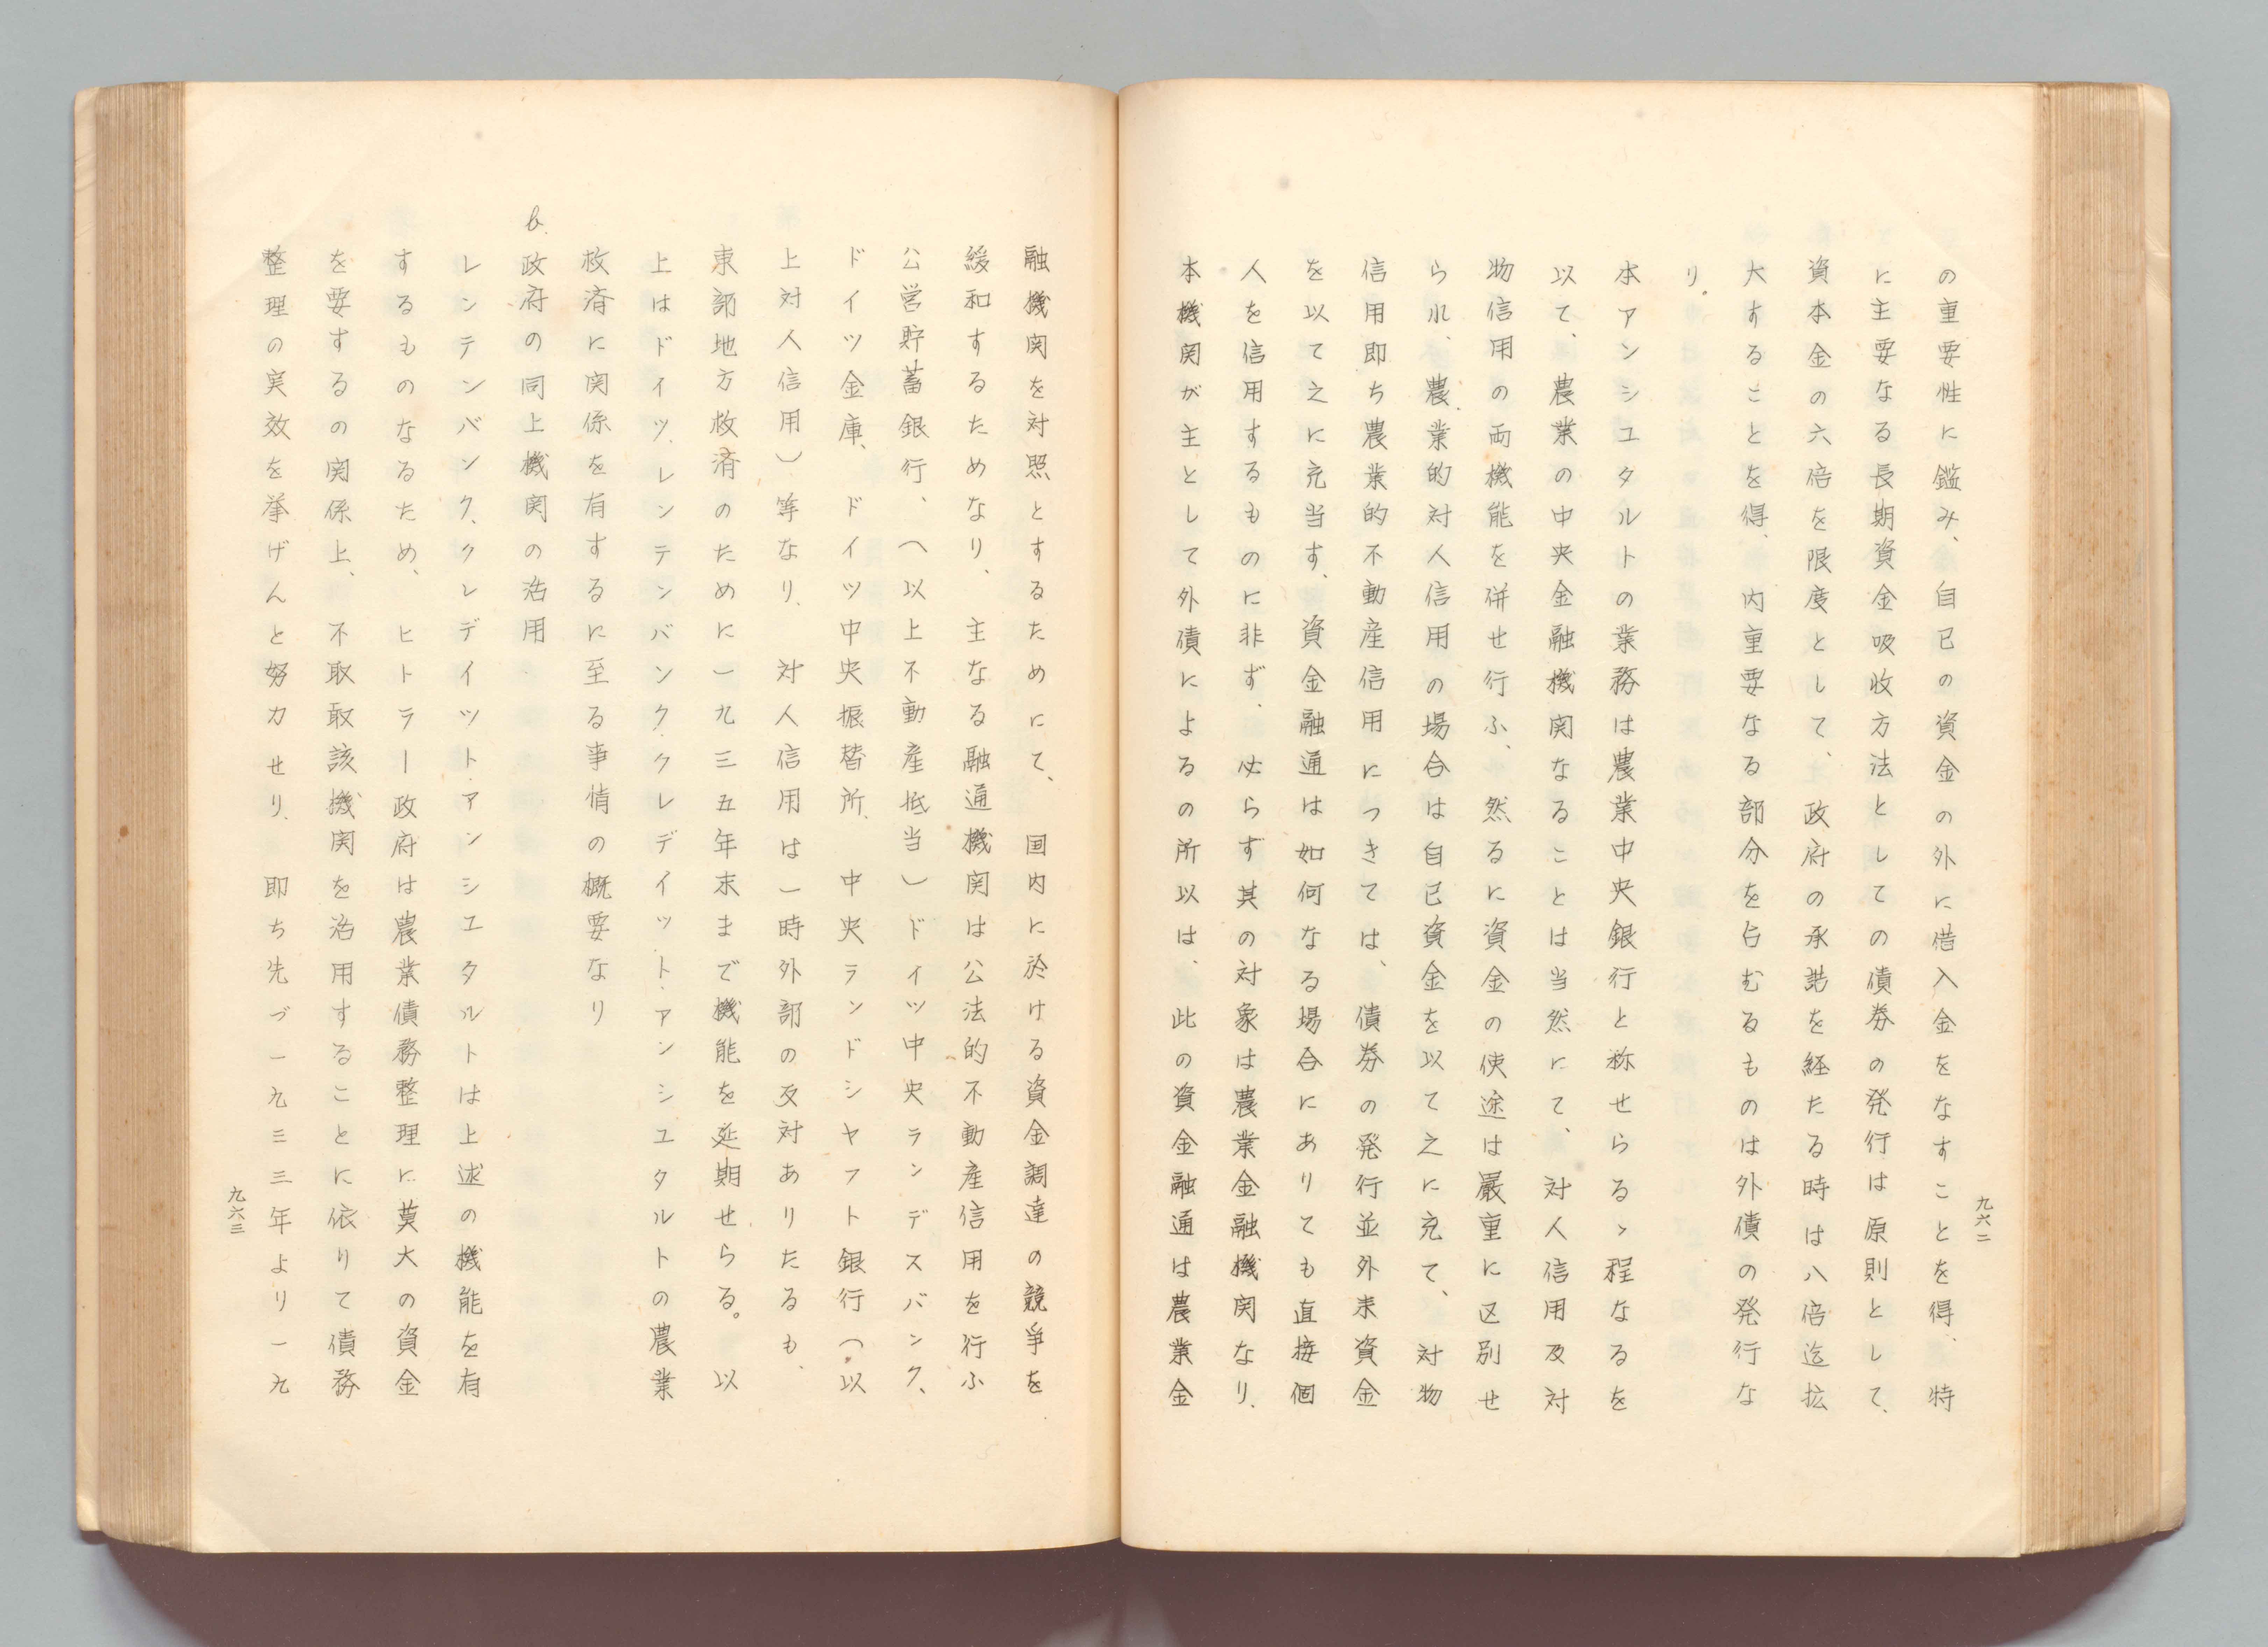 九六二
の重要性に鑑み、自己の資金の外に借入金をなすことを得、特
に主要なる長期資金吸收方法としての債券の発行は原則として、
資本金の六倍を限度として、政府の承諾を経たる時は八倍迄拡
大することを得、内重要なる部分を占むるものは外債の発行な
り。
本アンシユタルトの業務は農業中央銀行と称せらるゝ程なるを
以て、農業の中央金融機関なることは当然にて、対人信用及対
物信用の両機能を併せ行ふ、然るに資金の使途は厳重に区別せ
られ、農業的対人信用の場合は自己資金を以て之に充て、対物
信用即ち農業的不動産信用につきては、債券の発行並外来資金
を以て之に充当す、資金融通は如何なる場合にありても直接個
人を信用するものに非ず、必らず其の対象は農業金融機関なり、
本機関が主として外債によるの所以は、此の資金融通は農業金
融機関を対照とするためにて、国内に於ける資金調達の競争を
緩和するためなり、主なる融通機関は公法的不動産信用を行ふ
公営貯蓄銀行、（以上不動産抵当）ドイツ中央ランデスバンク、
ドイツ金庫、ドイツ中央振替所、中央ランドシヤフト銀行（以
上対人信用）等なり、対人信用は一時外部の反対ありたるも、
東部地方救済のために一九三五年末まで機能を延期せらる。以
上はドイツ、レンテンバンク、クレデイツト、アンシユタルトの農業
救済に関係を有するに至る事情の概要なり
b. 政府の同上機関の活用
レンテンバンク、クレデイツト、アンシユタルトは上述の機能を有
するものなるため、ヒトラー政府は農業債務整理に莫大の資金
を要するの関係上、不取敢該機関を活用することに依りて債務
整理の実效を挙げんと努力せり、即ち先づ一九三三年より一九
九六三